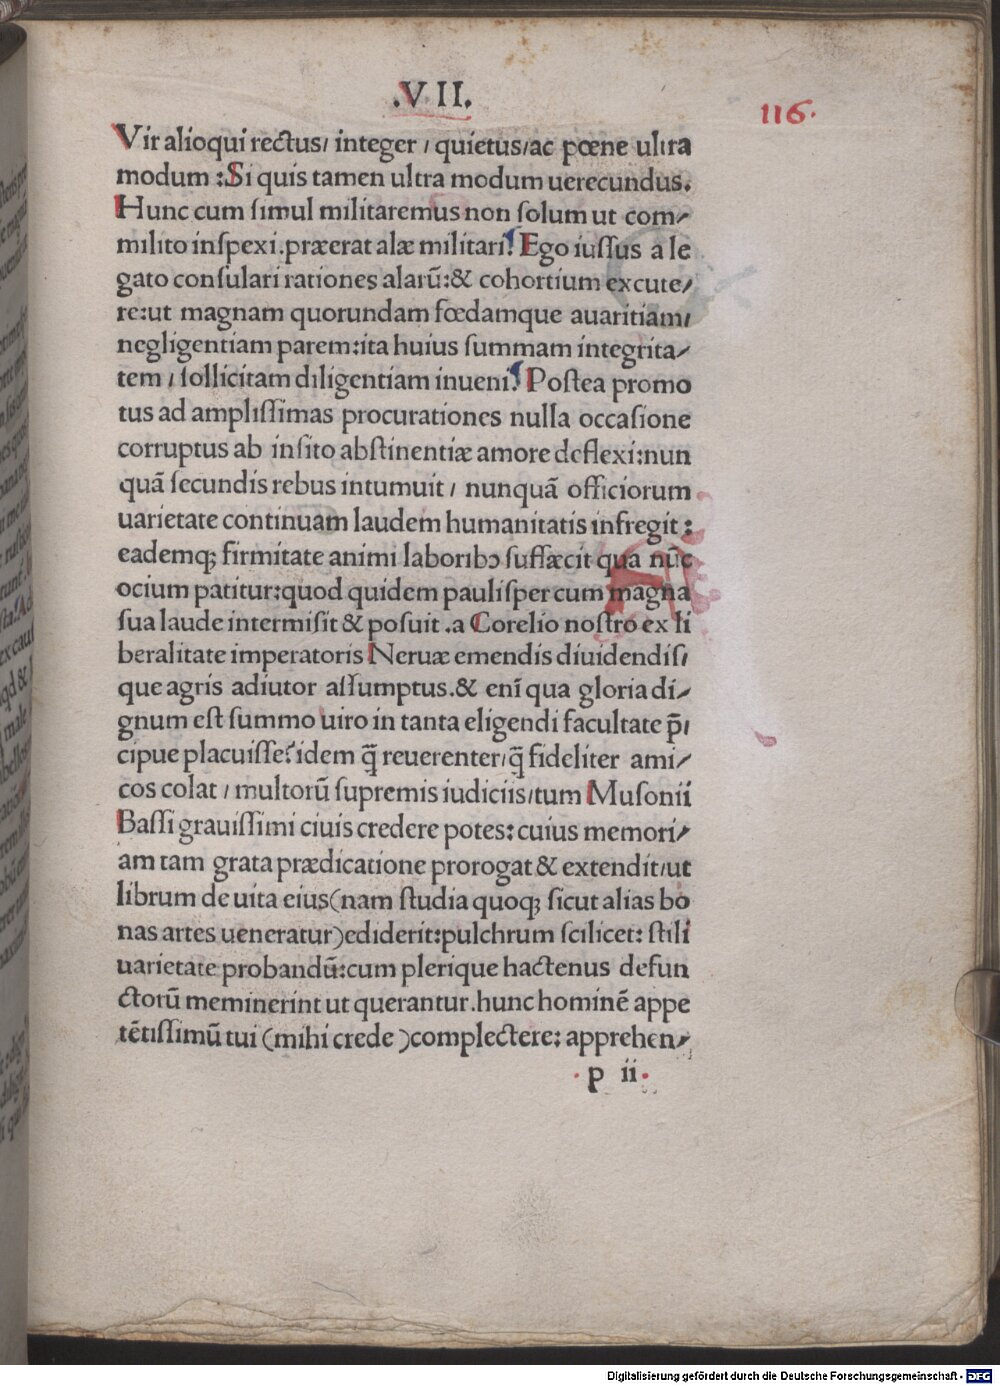 .VII.
116.
Vir alioqui rectus/ integer / quietus/ac pœne ultra
modum :Si quis tamen ultra modum uerecundus.
Hunc cum ſimul militaremus non ſolum ut com⸗
milito inſpexi.præerat alæ militari! Ego iuſſus a le
gato conſulari rationes alarū:& cohortium excute/
re:ut magnam quorundam fœdamque auaritiam/
negligentiam parem:ita huius ſummam integrita⸗
tem / ſollicitam diligentiam inueni! Poſtea promo
tus ad ampliſſimas procurationes nulla occaſione
corruptus ab inſito abſtinentiæ amore deflexi:nun
quā ſecundis rebus intumuit / nunquā officiorum
uarietate continuam laudem humanitatis infregit :
eademqꝫ firmitate animi laboribꝰ ſuffæcit qua nūc
ocium patitur:quod quidem pauliſper cum magna
ſua laude intermiſit & poſuit .a Corelio noſtro ex li
beralitate imperatoris Neruæ emendis diuidendiſ/
que agris adiutor aſſumptus.& enī qua gloria di⸗
gnum eſt ſummo uiro in tanta eligendi facultate p̄/
cipue placuiſſe?idem q̄ reuerenter/q̄ fideliter ami⸗
cos colat / multorū ſupremis iudiciis/tum Muſonii
Baſſi grauiſſimi ciuis credere potes: cuius memori⸗
am tam grata prædicatione prorogat & extendit/ut
librum de uita eius(nam ſtudia quoqꝫ ſicut alias bo
nas artes ueneratur)ediderit:pulchrum ſcilicet: ſtili
uarietate probandū:cum plerique hactenus defun
ctorū meminerint ut querantur.hunc hominē appe
tētiſſimū tui (mihi crede )complectere: apprehen⸗
p ii
Digitalisierung gefördert durch die Deutsche Forschungsgemeinschaft - DFG